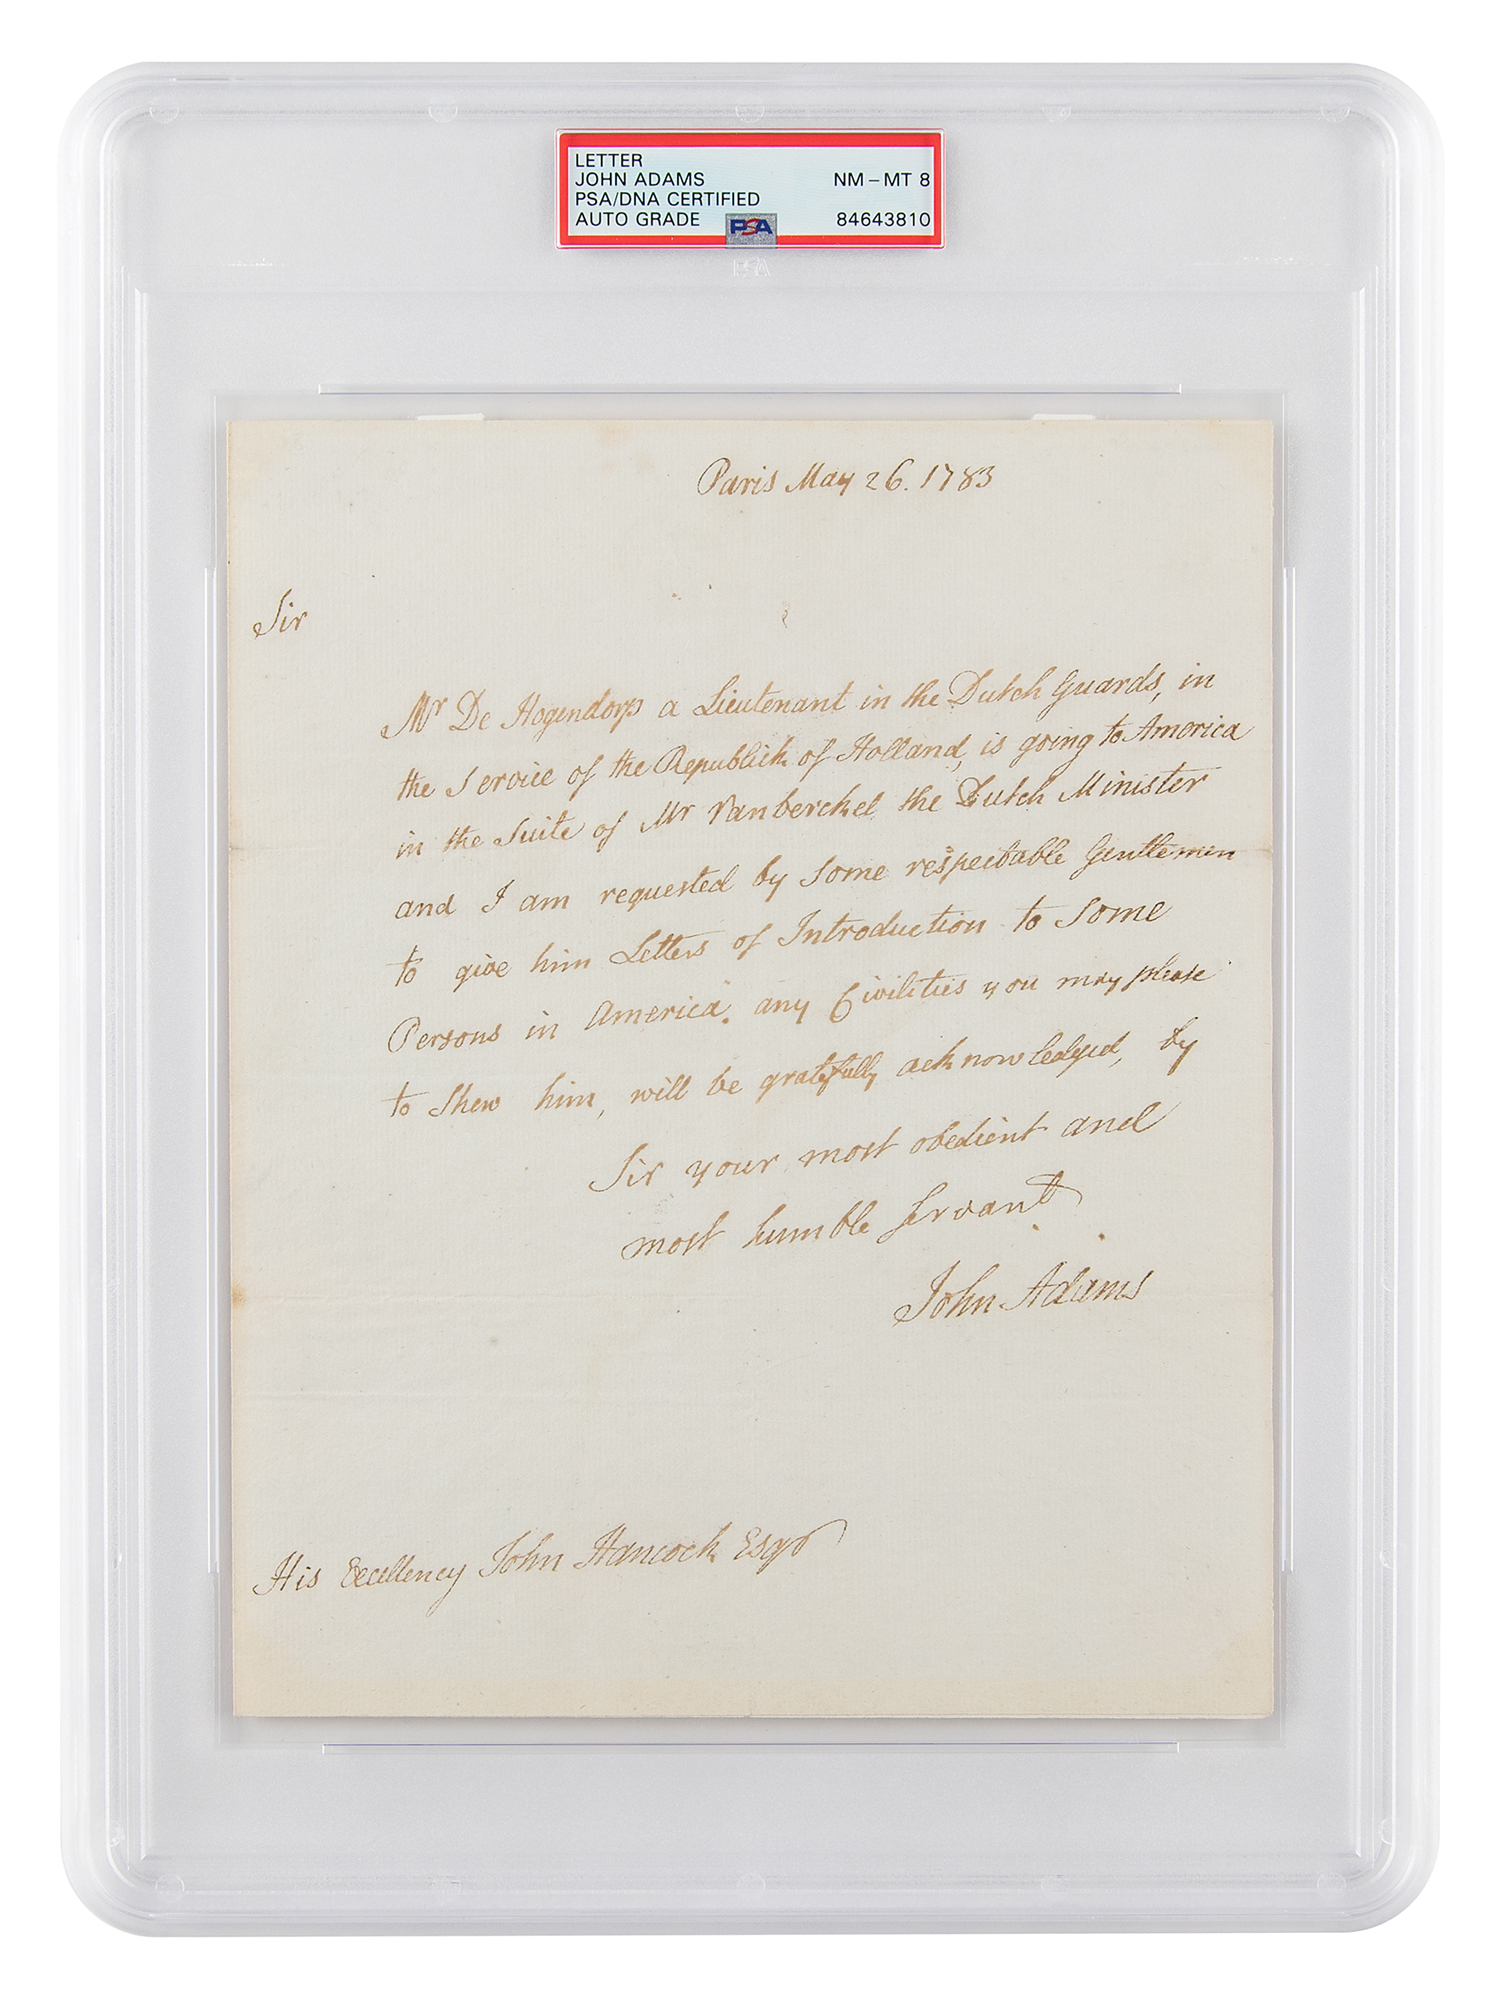 LETTER
JOHN ADAMS NM-MT 8
PSA/DNA CERTIFIED
AUTO GRADE PSA 84643810
PSA
Paris May 26. 1783
Sir
Mr De Hogendorp a Lieutenant in the Dutch Guards, in
the Service of the Republick of Holland, is going to America
in the Suite of Mr Vanberckel the Dutch Minister
and I am requested by Some respectable Gentlemen
to give him Letters of Introduction to Some
Persons in America. any Civilities you may please
to Shew him, will be gratefully acknowledged, by
Sir your most obedient and
most humble servant
John Adams
His Excellency John Hancock Esqr